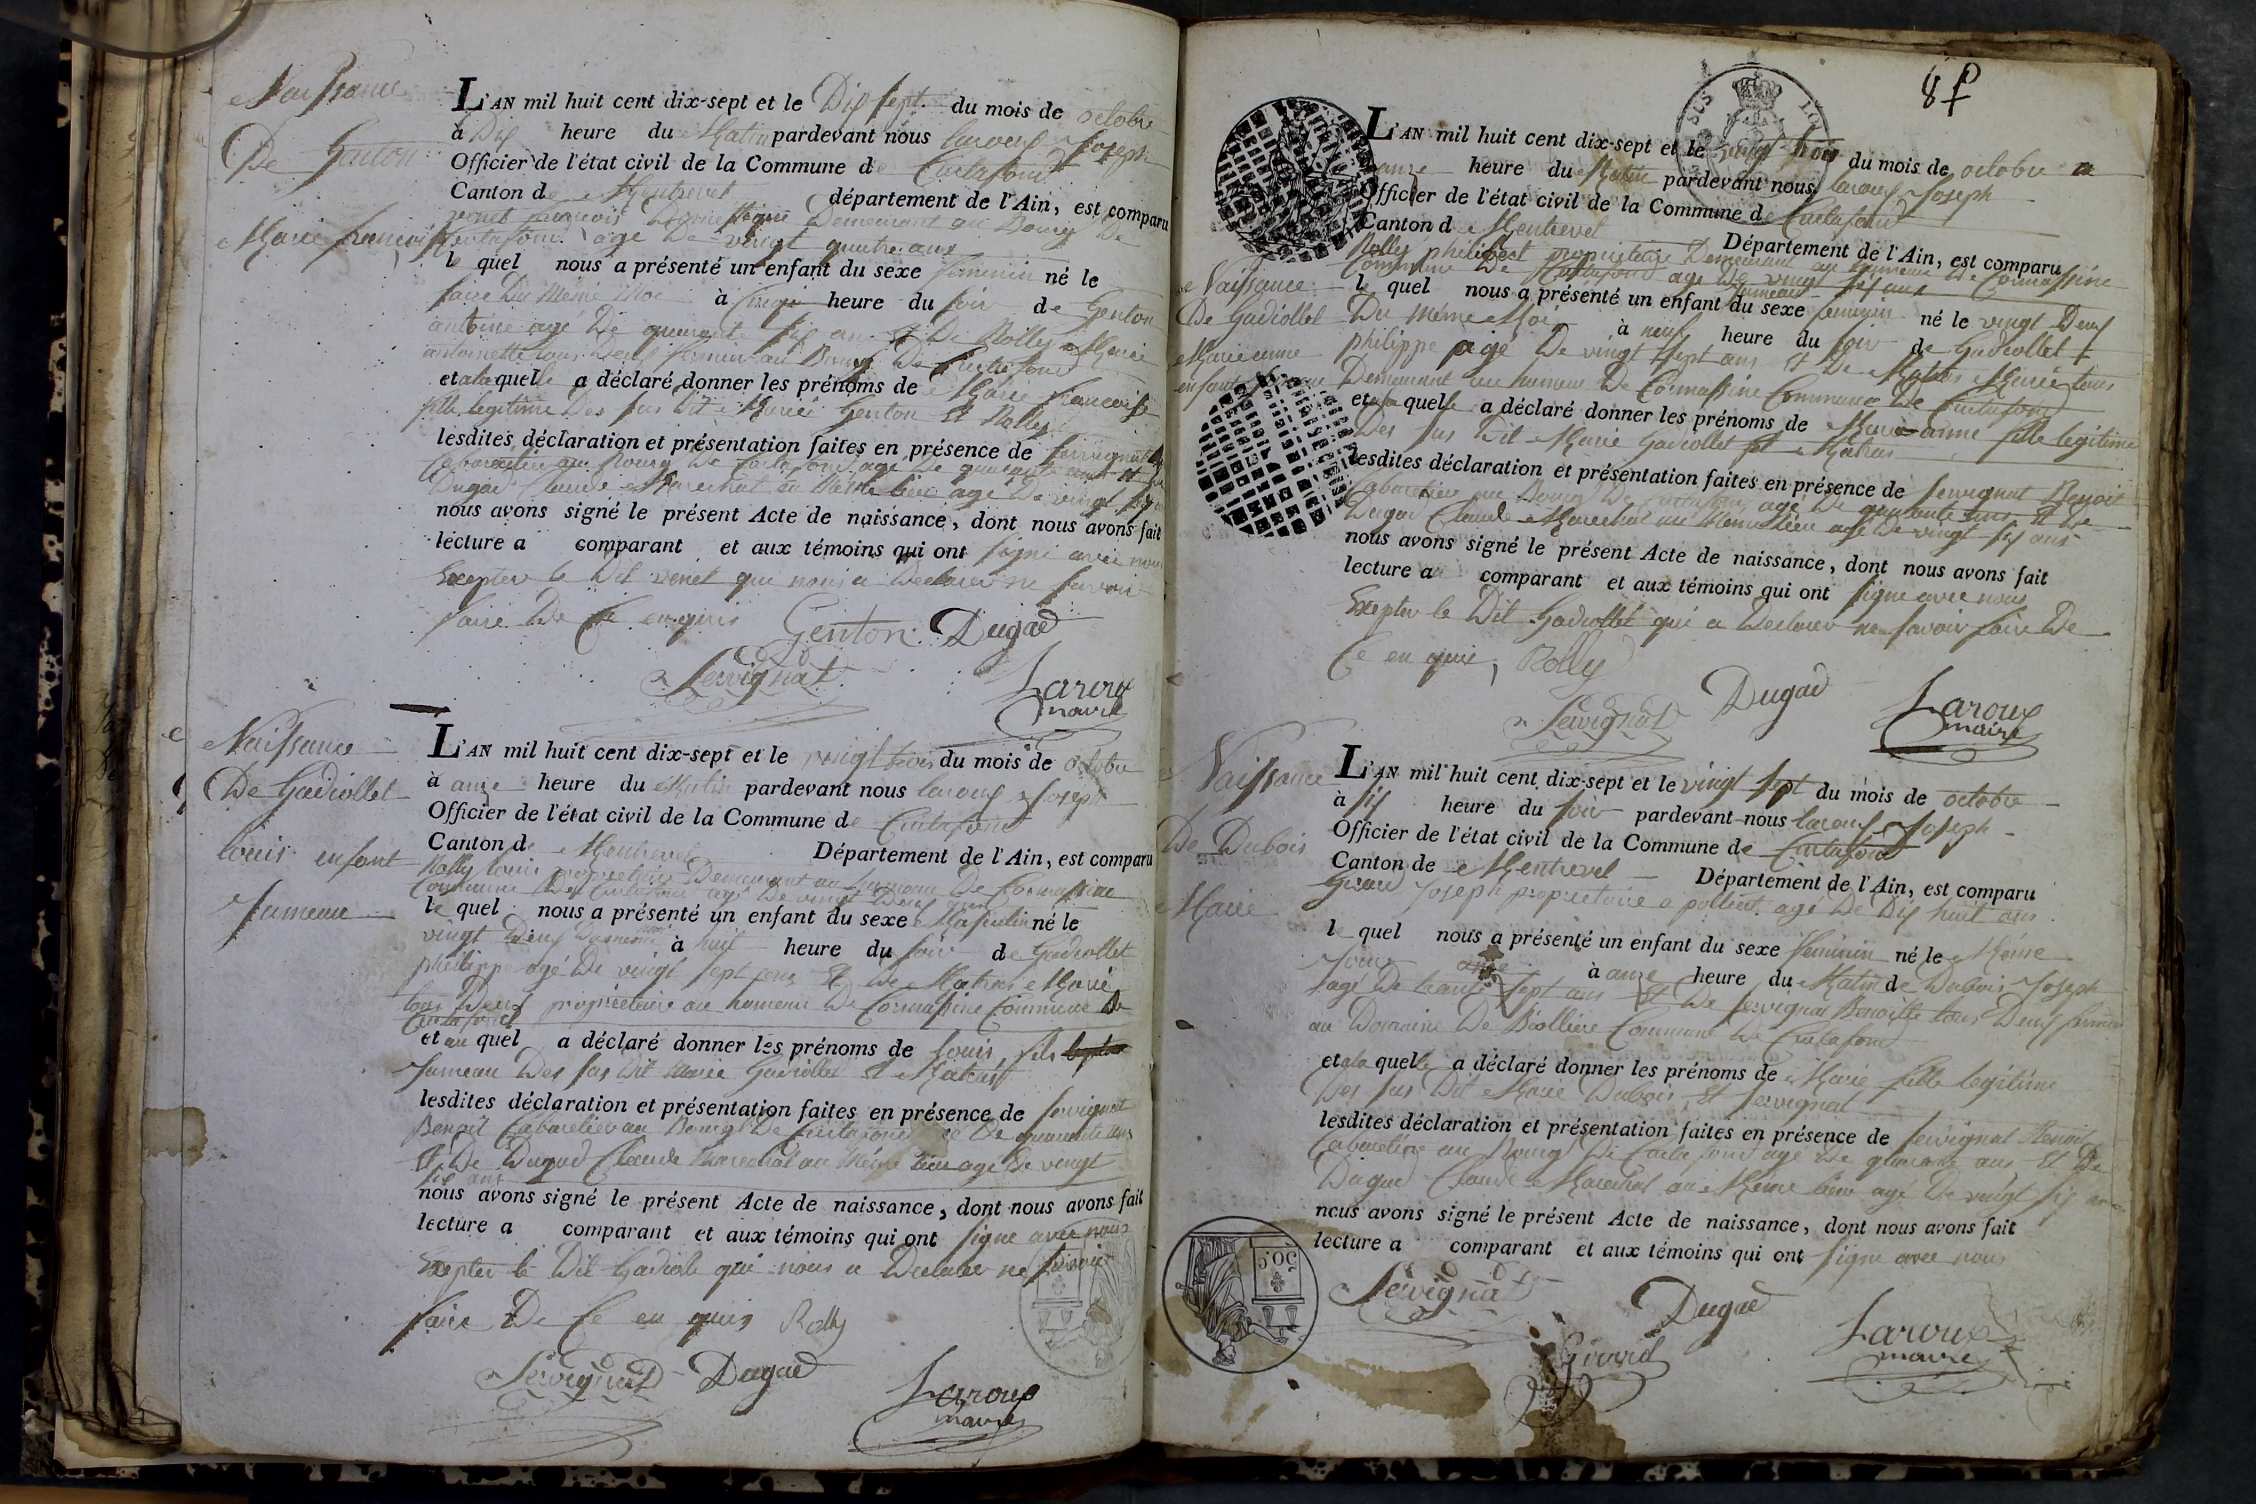 Naissance
De Genton
Marie françoise
L'AN mil huit cent dix-sept et le Dix sept du mois de octobre
à Dix heure du Matin pardevant nous laroux Joseph
Officier de l'état civil de la Commune de Curtafond
Canton de Montrevel département de l'Ain, est comparu
venet françois Domestique Demeurant au Bourg De
Curtafond agé De vingt quatre ans
le quel nous a présenté un enfant du sexe feminin né le
Du Même Moi à Cinq heure du soir de Genton
antoine agé De quarante six ans Et De Rolly Marie
antoinette tous Deux fermier au Bourg De Curtafond
et a la quelle a déclaré donner les prénoms de Marie francoise
fille legitime Des sus Dit Mariés Genton Et Rolly
lesdites déclaration et présentation faites en présence de servignat
Cabaretier au Bourg De Curtafond agé De quarante ans Et De
Dugad Claude Marechal au Même lieu agé De vingt six
nous avons signé le présent Acte de naissance, dont nous avons fait
lecture a comparant et aux témoins qui ont signé avec nous
Excepter le Dit venet qui nous a Declarer ne savoir
faire De Ce enquis Genton Dugad
Servignat Laroux
maire
Naissance
De Gadiollet
louis enfant
Jumeau
L'AN mil huit cent dix-sept et le vingt trois du mois de octobre
à onze heure du Matin pardevant nous laroux Joseph
Officier de l'état civil de la Commune de Curtafond
Canton de Montrevel Département de l'Ain, est comparu
Rolly louis proprietaire Demeurant au hameau De Cormassine
Commune De Curtafond agé De vingt Deux ans
le quel nous a présenté un enfant du sexe Masculin né le
vingt Deux Du même moi à huit heure du soir de Gadiollet
philippe agé De vingt sept ans Et De Matras Marie
tous Deux proprietaire au hameau De Cormassine Commune De
Curtafond
et au quel a déclaré donner les prénoms de Louis, fils
Jumeau Des sus Dit Mariés Gadiollet Et Matras
lesdites déclaration et présentation faites en présence de servignat
Benoit Cabaretier au Bourg De Curtafond agé De quarante ans
Et De Dugad Claude Marechal au Même lieu agé De vingt
six ans
nous avons signé le présent Acte de naissance, dont nous avons fait
lecture a comparant et aux témoins qui ont signé avec nous
Excepter le Dit Gadiolle qui nous a Declarer ne savoir
faire De Ce en quis Rolly
Servignat Dugad Laroux
maire
8
Naissance
De Gadiollet
Marie anne
enfant
L'AN mil huit cent dix-sept et le vingt trois du mois de octobre a
onze heure du Matin pardevant nous laroux Joseph
Officier de l'état civil de la Commune de Curtafond
Canton d Montrevel Département de l'Ain, est comparu
Rolly philibert proprietaire Demeurant au hameau De Cormassine
Commune De Curtafond agé De vingt six ans
le quel nous a présenté un enfant du sexe feminin né le vingt Deux
jumeau
Du même Moi à neuf heure du soir de Gadiollet
philippe agé De vingt sept ans Et De Matras Marie tous
Demeurant au hameau De Cormassine Commune De Curtafond
et a la quelle a déclaré donner les prénoms de Marie anne fille legitime
Des sus Dit Mariés Gadiollet Et Matras
lesdites déclaration et présentation faites en présence de servignat Benoit
Cabaretier au Bourg De Curtafond agé De quarante ans Et De
Dugad Claude Marechal au Même lieu agé De vingt six ans
nous avons signé le présent Acte de naissance, dont nous avons fait
lecture au comparant et aux témoins qui ont signé avec nous
Excepter le Dit Gadiollet qui a Declarer ne savoir faire De
Ce en quis, Rolly
Servignat Dugad Laroux
maire
Naissance
De Dubois
Marie
L'AN mil huit cent dix-sept et le vingt sept du mois de octobre
à six heure du soir pardevant nous laroux Joseph
Officier de l'état civil de la Commune de Curtafond
Canton de Montrevel Département de l'Ain, est comparu
Girard Joseph proprietaire a polliat agé De Dix huit ans
le quel nous a présenté un enfant du sexe feminin né le Même
Jour à onze heure du Matin de Dubois Joseph
agé De trante sept ans Et De servignat Benoitte tous Deux fermier
au Domaine De Biolliere Commune De Curtafond
et a la quelle a déclaré donner les prénoms de Marie fille legitime
Des sus Dit Mariés Dubois Et servignat
lesdites déclaration et présentation faites en présence de servignat Benoit
Cabaretier au Bourg De Curtafond agé De quarante ans Et De
Dugad Claude Marechal au Même lieu agé De vingt six ans
nous avons signé le présent Acte de naissance, dont nous avons fait
lecture a comparant et aux témoins qui ont signé avec nous
Servignat Dugad Laroux
Girard maire